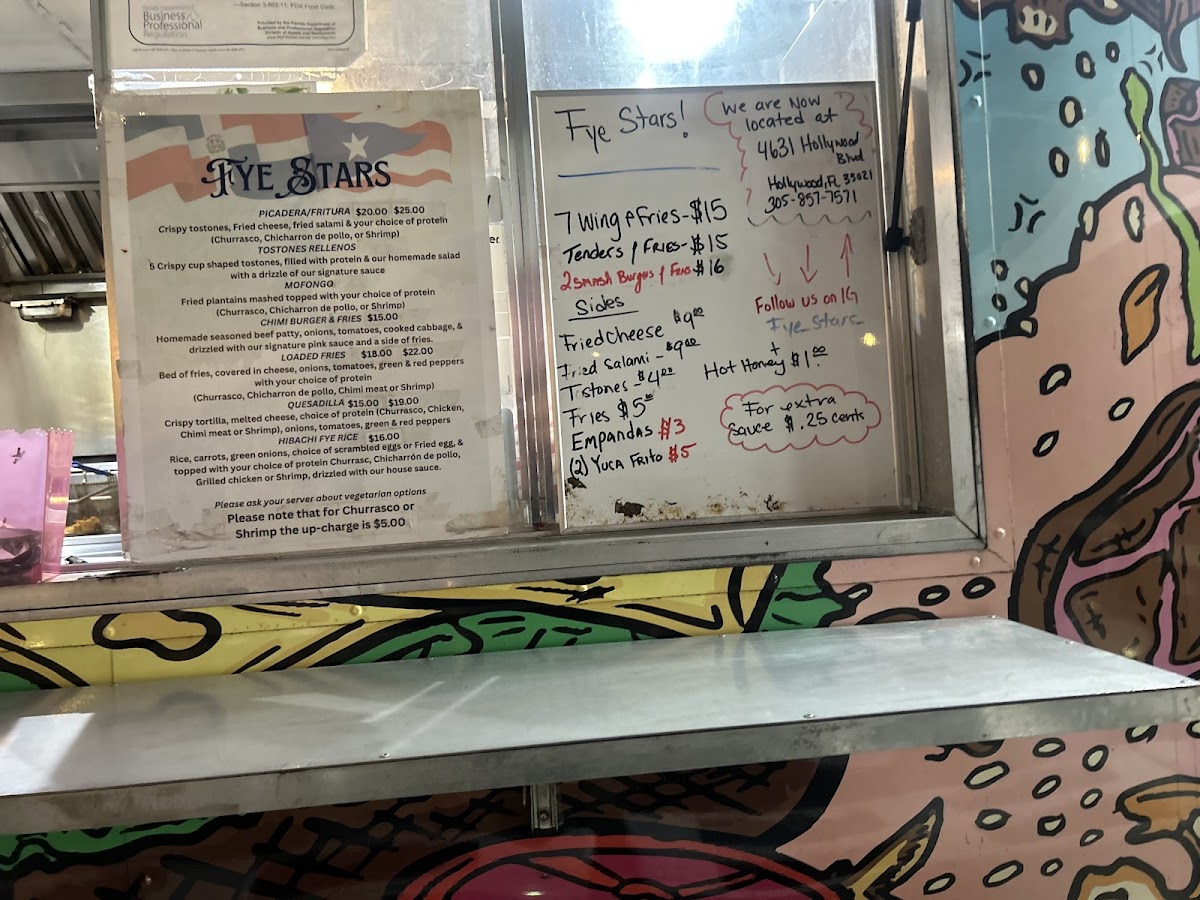 Business
Professional
Regulation
—Section 3-603.11, FDA Food Code
FYE STARS
PICADERA/FRITURA $20.00 $25.00
Crispy tostones, Fried cheese, fried salami & your choice of protein
(Churrasco, Chicharron de pollo, or Shrimp)
TOSTONES RELLENOS
5 Crispy cup shaped tostones, filled with protein & our homemade salad
with a drizzle of our signature sauce
MOFONGO
Fried plantains mashed topped with your choice of protein
(Churrasco, Chicharron de pollo, or Shrimp)
CHIMI BURGER & FRIES $15.00
Homemade seasoned beef patty, onions, tomatoes, cooked cabbage, &
drizzled with our signature pink sauce and a side of fries.
LOADED FRIES $18.00 $22.00
Bed of fries, covered in cheese, onions, tomatoes, green & red peppers
with your choice of protein
(Churrasco, Chicharron de pollo, Chimi meat or Shrimp)
QUESADILLA $15.00 $19.00
Crispy tortilla, melted cheese, choice of protein (Churrasco, Chicken,
Chimi meat or Shrimp), onions, tomatoes, green & red peppers
HIBACHI FYE RICE $16.00
Rice, carrots, green onions, choice of scrambled eggs or Fried egg, &
topped with your choice of protein Churrasc, Chicharrón de pollo,
Grilled chicken or Shrimp, drizzled with our house sauce.
Please ask your server about vegetarian options
Please note that for Churrasco or
Shrimp the up-charge is $5.00
Fye Stars!
7 Wing & Fries - $15
Tenders / Fries - $15
2 Smash Burgers / Fries - $16
Sides
Fried Cheese $9.00
Fried Salami - $9.00
Tostones - $4.00
Fries $5.00
Empandas $3
(2) Yuca Frito $5
We are Now
located at
4631 Hollywood
Blvd
Hollywood, FL 33021
305-857-7571
Follow us on IG
Fye_Stars_
+
Hot Honey $1.00
For extra
sauce $.25 cents